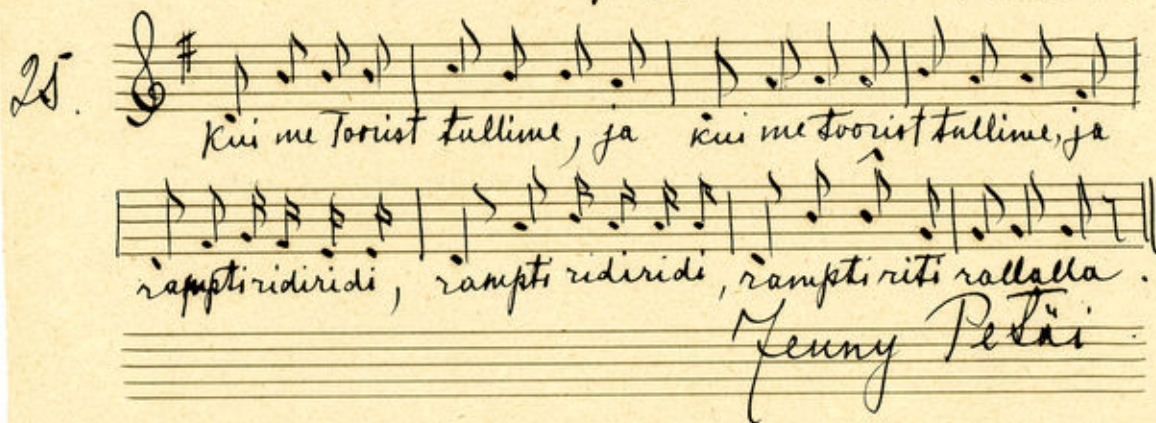 25.
Kui me Toorist tullime, ja kui me toorist tullime, ja
ramptiridiridi, rampti ridiridi, rampti riti rallalla.
Jenny Petäi